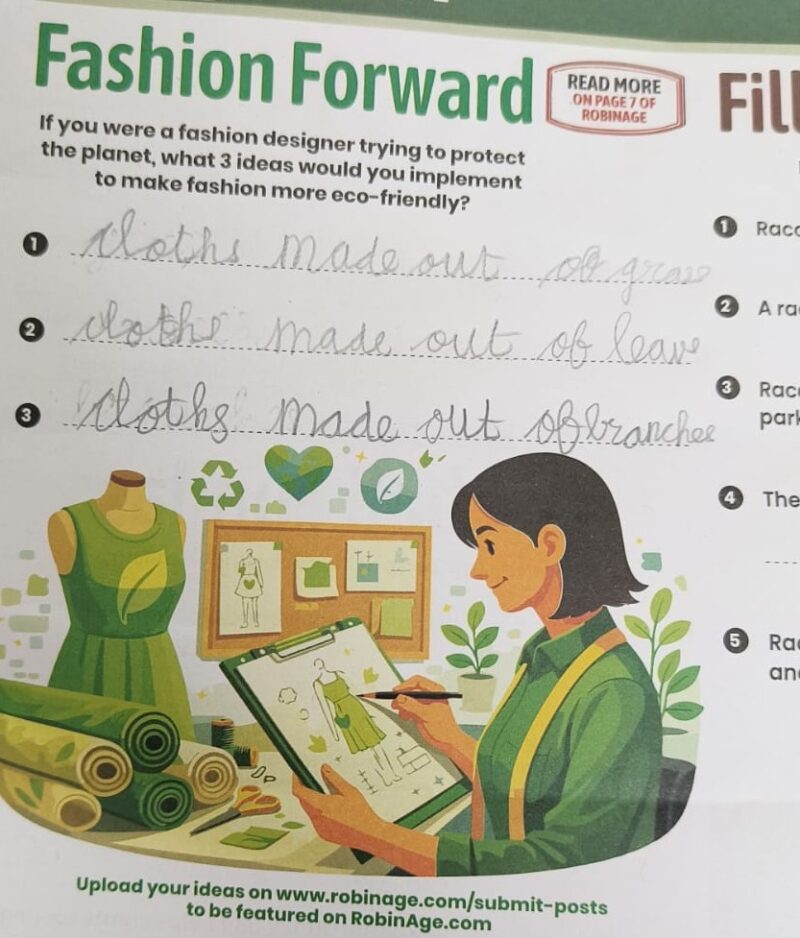 Fashion Forward
READ MORE
ON PAGE 7 OF
ROBINAGE
Fill
If you were a fashion designer trying to protect
the planet, what 3 ideas would you implement
to make fashion more eco-friendly?
1 cloths made out of grass
2 cloths made out of leave
3 cloths made out of branches
1 Racc
2 A ra
3 Racc
park
4 The
5 Ra
an
Upload your ideas on www.robinage.com/submit-posts
to be featured on RobinAge.com